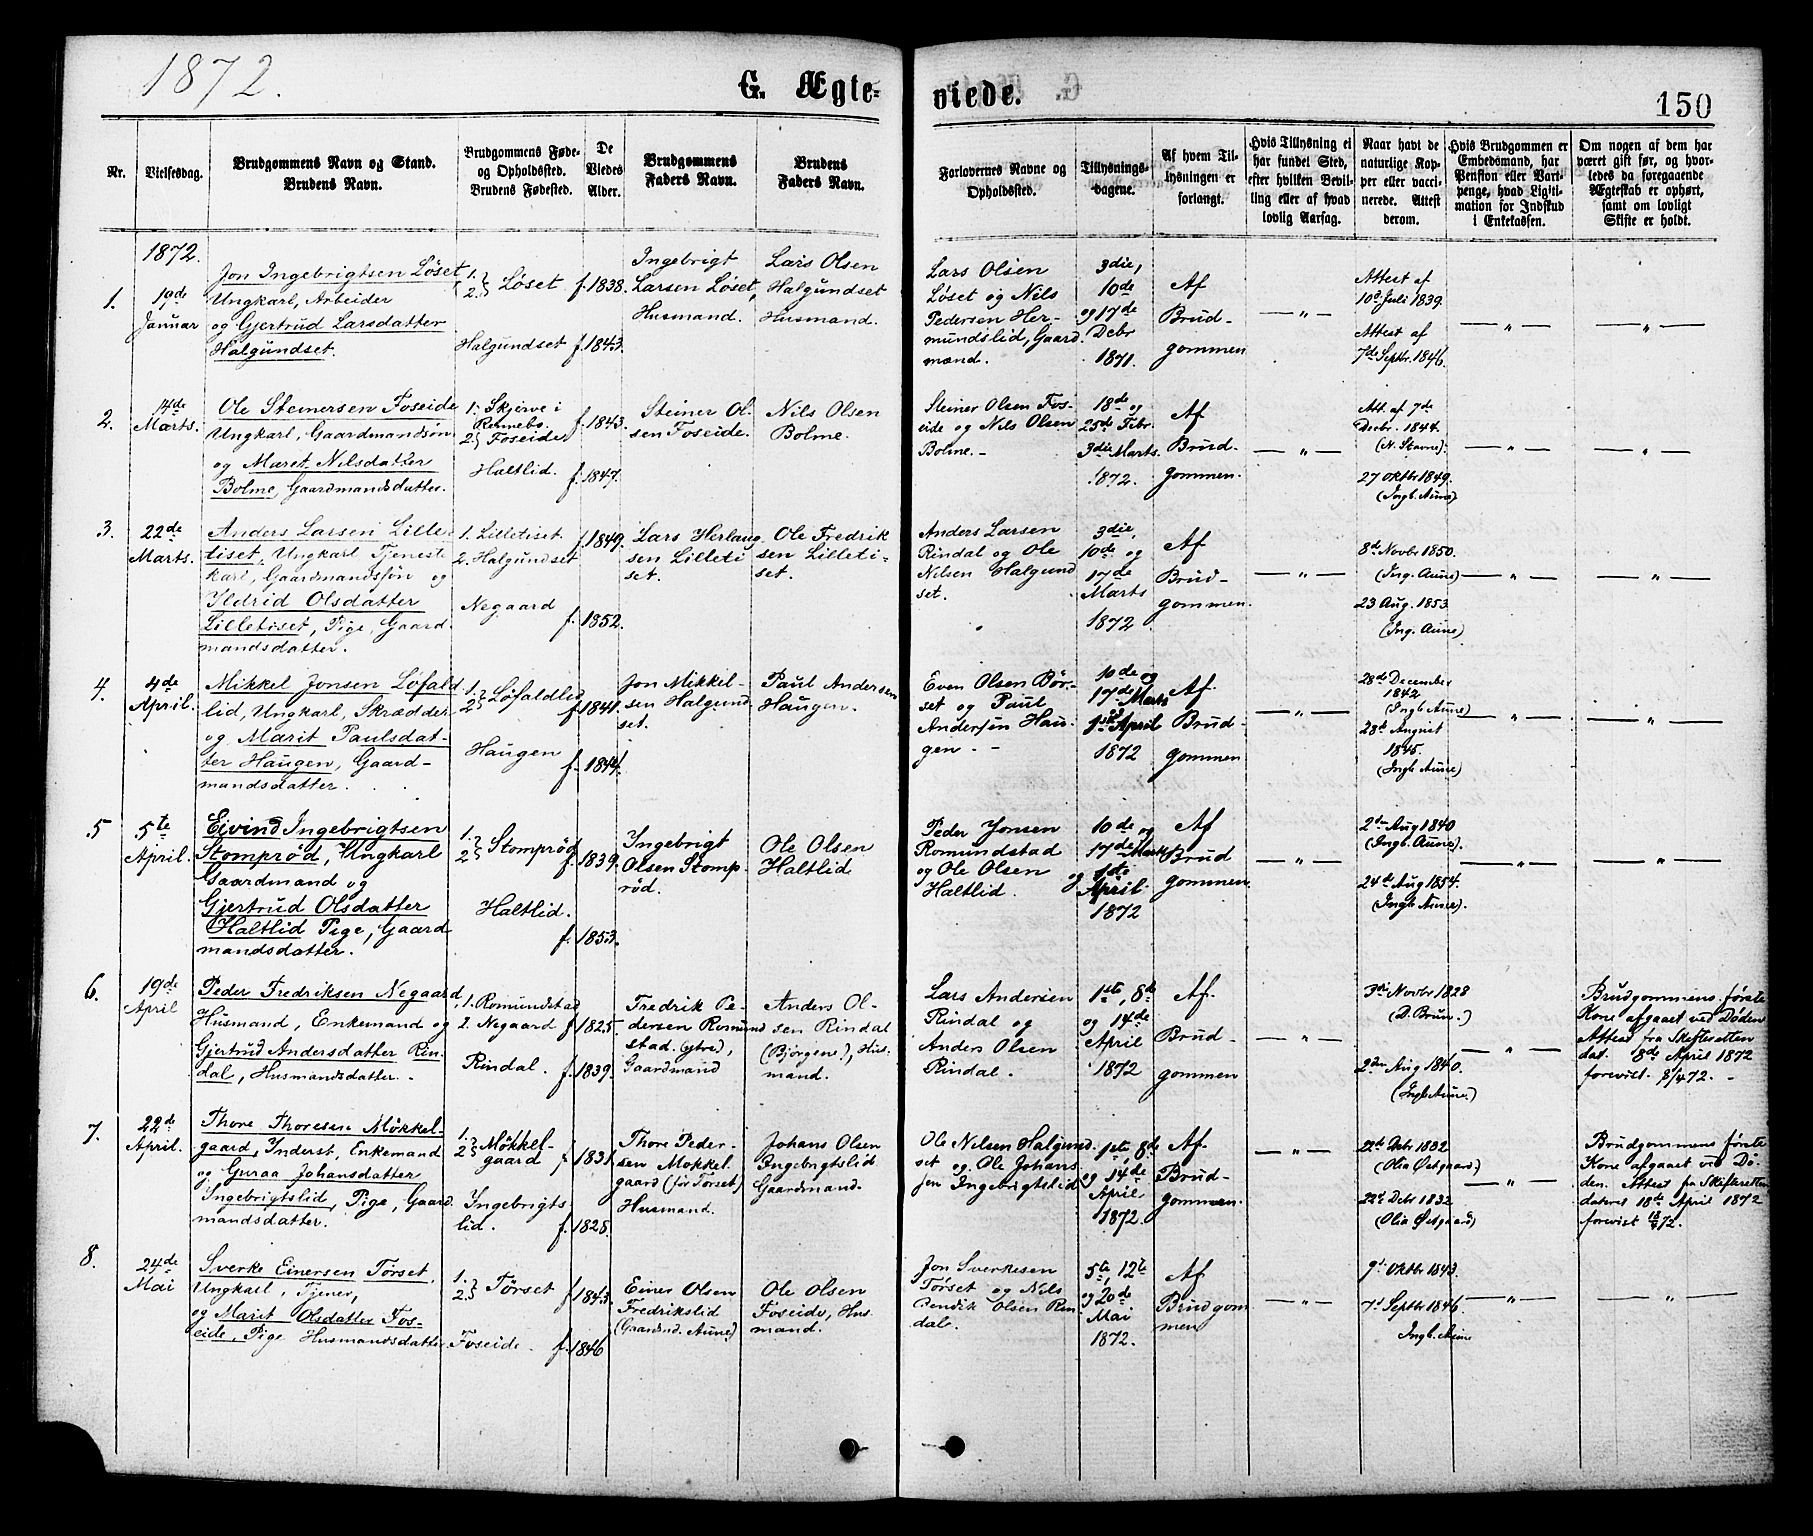 1872.
G. Ægte-
viede.
150
Nr.
Vielsesdag.
Brudgommens Navn og Stand.
Brudens Navn.
Brudgommens Føde-
og Opholdssted.
Brudens Fødested.
De
Viedes
Alder.
Brudgommens
Faders Navn.
Brudens
Faders Navn.
Forlovernes Navne og
Opholdssted.
Tillysnings-
dagene.
Af hvem Til-
lysningen er
forlangt.
Hvis Tillysning ei
har fundet Sted,
efter hvilken Bevil-
ling eller af hvad
lovlig Aarsag.
Naar havt de
naturlige Kop-
per eller vacci-
nerede. Attest
derom.
Hvis Brudgommen er
Embedsmand, har
Pension eller Vart-
penge, hvad Ligiti-
mation for Indskud
i Enkekassen.
Om nogen af dem har
været gift før, og hvor-
ledes da foregaaende
Ægteskab er ophørt,
samt om lovligt
Skifte er holdt.
1872.
1.
Januar
Jon Ingebrigtsen Løset
Ungkarl, Arbeider
og Gjertrud Larsdatter
Halgundset.
1.
2. Løset
Halgundset
f. 1838.
f. 1843.
Ingebrigt
Larsen Løset,
Husmand.
Lars Olsen
Halgundset
Husmand.
Lars Olsen
Løset og Nils
Pedersen Her-
mundslid, Gaard
mænd.
3die,
10de
og 17de
Debr
1871.
Af
Brud-
gommen
— " —
Attest af
10d Juli 1839.
Attest af
7de Septbr. 1846.
— " —
— " —
2.
14de
Marts.
Ole Steinersen Foseide
Ungkarl, Gaardmandsøn
og Maret Nilsdatter
Bolme, Gaardmandsdatter.
1. Skjerve i
Rennebo.
2. Foseide
Haltlid
f. 1843.
f. 1847.
Steiner Ol-
sen Foseide.
Nils Olsen
Bolme.
Steiner Olsen Fos-
eide og Nils Olsen
Bolme. -
18de og
25de Febr.
3die Marts.
1872.
Af
Brud-
gommen.
— " —
Att. af 7de
Decbr. 1844.
(N. Stavne).
27 Oktbr 1849.
(Ingb. Aune)
— " —
— " —
3.
22de
Marts.
Anders Larsen Lille-
tiset, Ungkarl Tjeneste
karl, Gaardmandssøn og
Ildrid Olsdatter
Lilletiset, Pige, Gaard
mandsdatter.
1. Lilletiset.
2. Halgundset
Negaard
f. 1849.
f. 1852.
Lars Herlaug
sen Lilleti
set.
Ole Fredrik
sen Lilleti-
set.
Anders Larsen
Rindal og Ole
Nilsen Halgund
set.
3die,
10de og
17de
Marts
1872
Af
Brud-
gommen.
— " —
8d Novbr 1850.
(Ing. Aune)
23 Aug. 1853.
(Ing. Aune)
— " —
— " —
4.
4de
April.
Mikkel Jonsen Løfald
lid, Ungkarl, Skrædder
og Marit Paulsdat-
ter Haugen, Gaard-
mandsdatter.
1.
2. Løfaldlid
Haugen
f. 1841.
f. 1844.
Jon Mikkel-
sen Halgund
set.
Paul Andersen
Haugen.
Even Olsen Bør-
set og Paul
Andersen Hau-
gen. -
10de og
17de Marts
1ste April
1872
Af
Brud-
gommen
— " —
28de December
1842
(Ingb Aune)
28de August
1845.
(Ingb Aune)
— " —
— " —
5
5te
April.
Eivind Ingebrigtsen
Stomprød, Ungkarl
Gaardmand og
Gjertrud Olsdatter
Haltlid Pige, Gaard
mandsdatter.
1.
2 Stomprød
Haltlid.
f. 1839.
f. 1853.
Ingebrigt
Olsen Stomp-
rød.
Ole Olsen
Haltlid
Peder Jonsen
Romundstad
og Ole Olsen
Haltlid.
10de og
17de Marts
og 1ste
April.
1872
Af
Brud
gommen.
— " —
2den Aug 1840
(Ingb. Aune).
24de Aug 1854.
(Ingb Aune).
— " —
— " —
6.
19de
April
Peder Fredriksen Negaard,
Husmand, Enkemand og
Gjertrud Andersdatter Rin-
dal, Husmandsdatter. -
1. Romundstad
2. Negaard
Rindal.
f. 1825.
f. 1839.
Fredrik Pe-
dersen Romund
stad. (ytre),
Gaardmand
Anders Ol-
sen Rindal
(Bjørgene), Hus-
mand.
Lars Andersen
Rindal og
Anders Olsen
Rindal.
1ste, 8de
og 14de
April
1872
Af
Brud-
gommen
— " —
3die Novbr 1828
(D. Brun.)
2den Aug 1840.
(Ingb Aune.)
— " —
Brudgommens første
Kone afgaaet ved Døden
Attest fra Skifteretten
dat. 18de April 1872
forevist.
7.
22de
April.
Thore Thoresen Møkkel-
gaard, Inderst, Enkemand
og Guraa Johansdatter
Ingebrigtslid, Pige, Gaard.
mandsdatter.
1.
2. Møkkel-
gaard
Ingebrigts
lid.
f. 1831.
f. 1828.
Thore Peder-
sen Møkkel
gaard (før Tørset)
Husmand.
Johans Olsen
Ingebrigtslid
Gaardmand.
Ole Nilsen Halgund
set og Ole Johans
sen Ingebrigtslid
1ste, 8de
og 14de
April
1872.
Af
Brud-
gommen.
— " —
22de Debr 1832
(Olia Østgaard.)
22de Debr 1832
(Olia Østgaard)
— " —
Brudgommens første
Kone afgaaet ved Dø-
den. Attest fra Skifteretten
dateret 18de April 1872
forevist
8.
24de
Mai
Sverke Einersen Tørset,
Ungkarl, Tjener,
og Marit Olsdatter Fos-
eide, Pige Husmandsdatter.
1.
2. Tørset
Foseide.
f. 1843.
f. 1846
Einer Olsen
Fredrikslid
(Gaardmd. Aune)
Ole Olsen
Foseide, Hus
mand.
Jon Sverkesen
Tørset og Nils
Bendik Olsen Rin
dal.
5te, 12te
og 20de
Mai
1872.
Af
Brudgom
men
— " —
9d. Oktbr 1843.
7d Septbr 1846.
Ingb. Aune
— " —
— " —